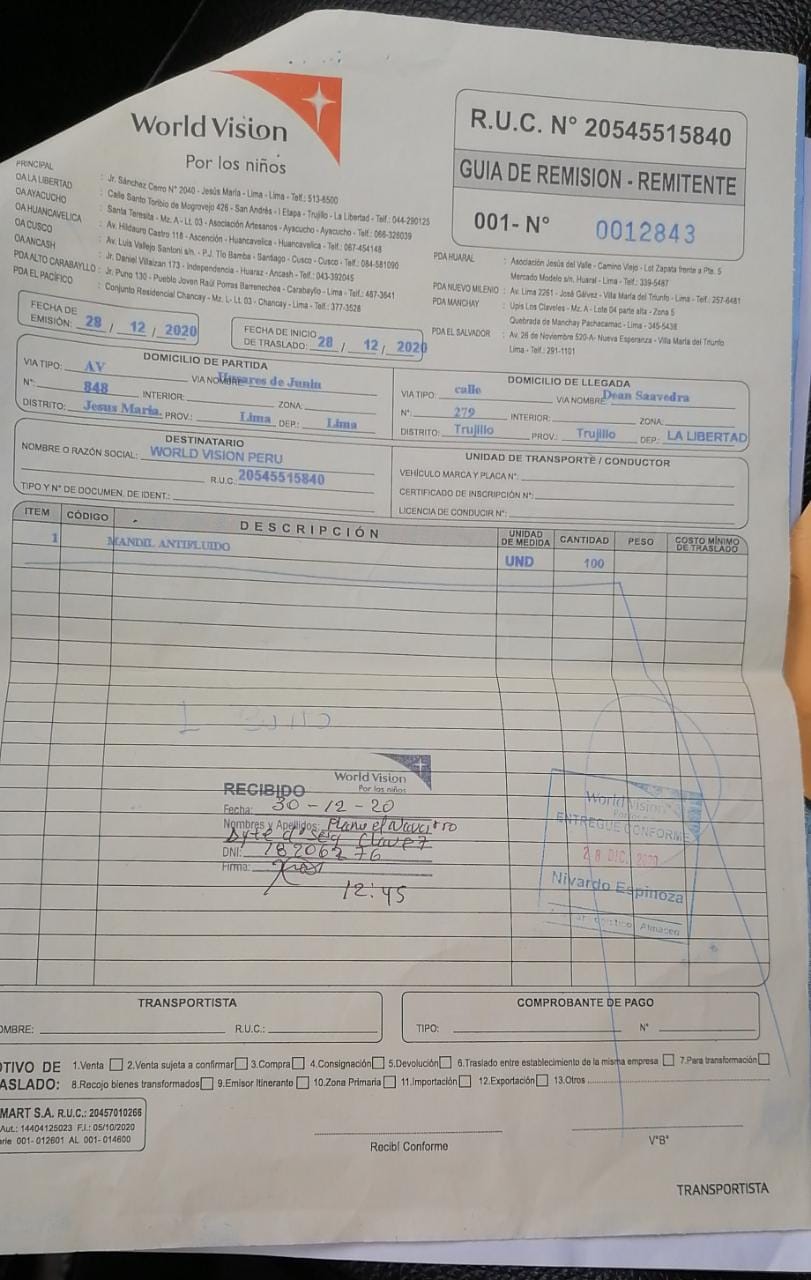 World Vision
Por los niños
R.U.C. N° 20545515840
GUIA DE REMISION - REMITENTE
001- N° 0012843
PRINCIPAL : Jr. Sánchez Cerro N° 2040 - Jesús María - Lima - Lima - Telf.: 513-6500
OA LA LIBERTAD : Calle Santo Toribio de Mogrovejo 426 - San Andrés - I Etapa - Trujillo - La Libertad - Telf.: 044-290125
OA AYACUCHO : Santa Teresita - Mz. A - Lt. 03 - Asociación Artesanos - Ayacucho - Ayacucho - Telf.: 066-328039
OA HUANCAVELICA : Av. Hildauro Castro 118 - Ascención - Huancavelica - Huancavelica - Telf.: 067-454148
OA CUSCO : Av. Luis Vallejo Santoni s/n. - P.J. Tío Bamba - Santiago - Cusco - Cusco - Telf.: 084-581090
OA ANCASH : Jr. Daniel Villaizan 173 - Independencia - Huaraz - Ancash - Telf.: 043-392045
PDA ALTO CARABAYLLO : Jr. Puno 130 - Pueblo Joven Raúl Porras Barrenechea - Carabayllo - Lima - Telf.: 487-3641
PDA EL PACÍFICO : Conjunto Residencial Chancay - Mz. L - Lt. 03 - Chancay - Lima - Telf.: 377-3528
PDA HUARAL : Asociación Jesús del Valle - Camino Viejo - Lot Zapata frente a Pte. 5
Mercado Modelo s/n, Huaral - Lima - Telf.: 339-5487
PDA NUEVO MILENIO : Av. Lima 2261 - José Gálvez - Villa María del Triunfo - Lima - Telf.: 257-6481
PDA MANCHAY : Upis Los Claveles - Mz. A - Lote 04 parte alta - Zona 5
Quebrada de Manchay Pachacamac - Lima - 345-5438
PDA EL SALVADOR : Av. 26 de Noviembre 520-A- Nueva Esperanza - Villa María del Triunfo
Lima - Telf.: 291-1101
FECHA DE EMISIÓN: 28 / 12 / 2020
FECHA DE INICIO DE TRASLADO: 28 / 12 / 2020
DOMICILIO DE PARTIDA
VIA TIPO: AV VIA NOMBRE: Husares de Junin
N°: 848 INTERIOR: ZONA:
DISTRITO: Jesus Maria. PROV.: Lima DEP.: Lima
DOMICILIO DE LLEGADA
VIA TIPO: calle VIA NOMBRE: Dean Saavedra
N°: 279 INTERIOR: ZONA:
DISTRITO: Trujillo PROV.: Trujillo DEP.: LA LIBERTAD
DESTINATARIO
NOMBRE O RAZÓN SOCIAL: WORLD VISION PERU
R.U.C.: 20545515840
TIPO Y N° DE DOCUMEN. DE IDENT.:
UNIDAD DE TRANSPORTE / CONDUCTOR
VEHÍCULO MARCA Y PLACA N°:
CERTIFICADO DE INSCRIPCIÓN N°:
LICENCIA DE CONDUCIR N°:
ITEM CÓDIGO DESCRIPCIÓN UNIDAD DE MEDIDA CANTIDAD PESO COSTO MÍNIMO DE TRASLADO
1 MANDIL ANTIFLUIDO UND 100
World Vision
Por los niños
RECIBIDO
Fecha: 30-12-20
Nombres y Apellidos:
DNI: 18206276
Firma:
12:45
World Vision
ENTREGUE CONFORME
28 DIC. 2020
Nivardo Espinoza
Almacen
TRANSPORTISTA
OMBRE: R.U.C.:
COMPROBANTE DE PAGO
TIPO: N°
OTIVO DE ASLADO: 1.Venta 2.Venta sujeta a confirmar 3.Compra 4.Consignación 5.Devolución 6.Traslado entre establecimiento de la misma empresa 7.Para transformación
8.Recojo bienes transformados 9.Emisor Itinerante 10.Zona Primaria 11.Importación 12.Exportación 13.Otros
MART S.A. R.U.C.: 20457010266
Aut.: 14404125023 F.I.: 05/10/2020
rie 001- 012601 AL 001- 014600
Recibí Conforme
V°B°
TRANSPORTISTA